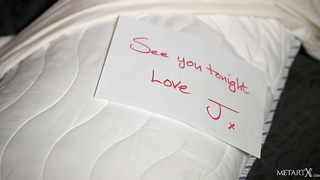 See you tonight
Love J x
METARTX.COM